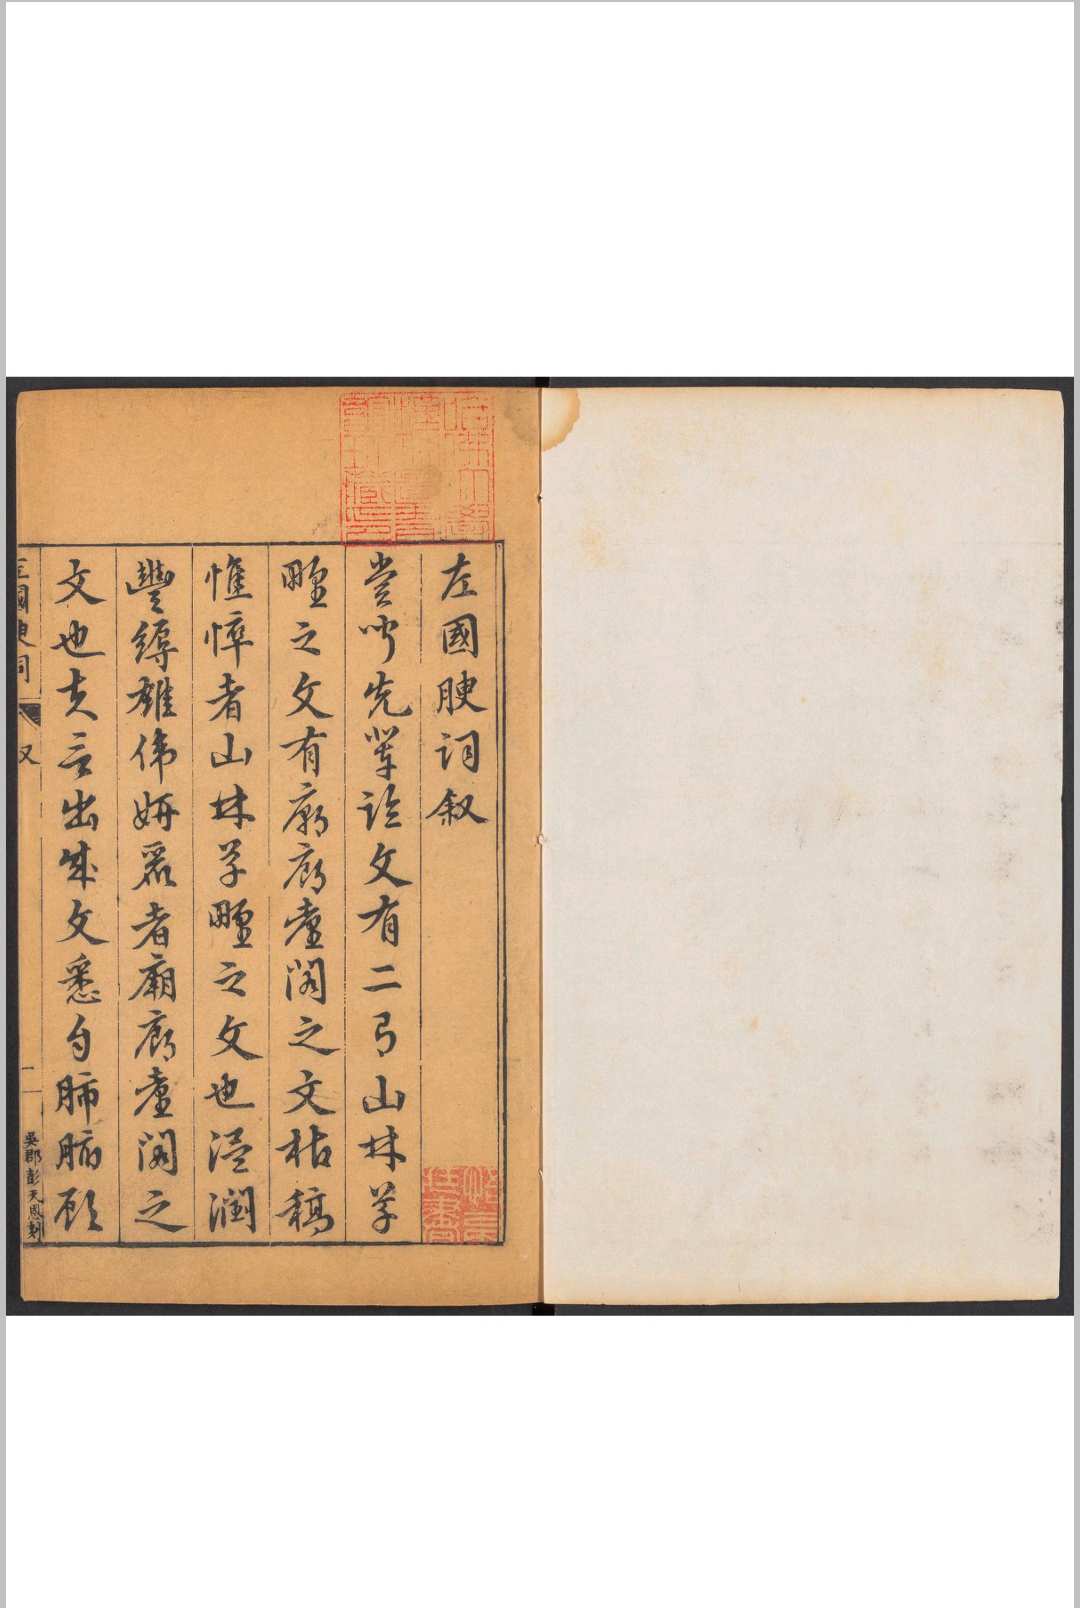 左國腴詞叙
嘗聞先輩論文有二曰山林草
野之文有廟廊臺閣之文枯槁
憔悴者山林草野之文也渥潤
豐縟雄偉妍麗者廟廊臺閣之
文也夫言出成文悉自肺腑顧
左國腴詞
叙
一
吳郡彭天恩刻